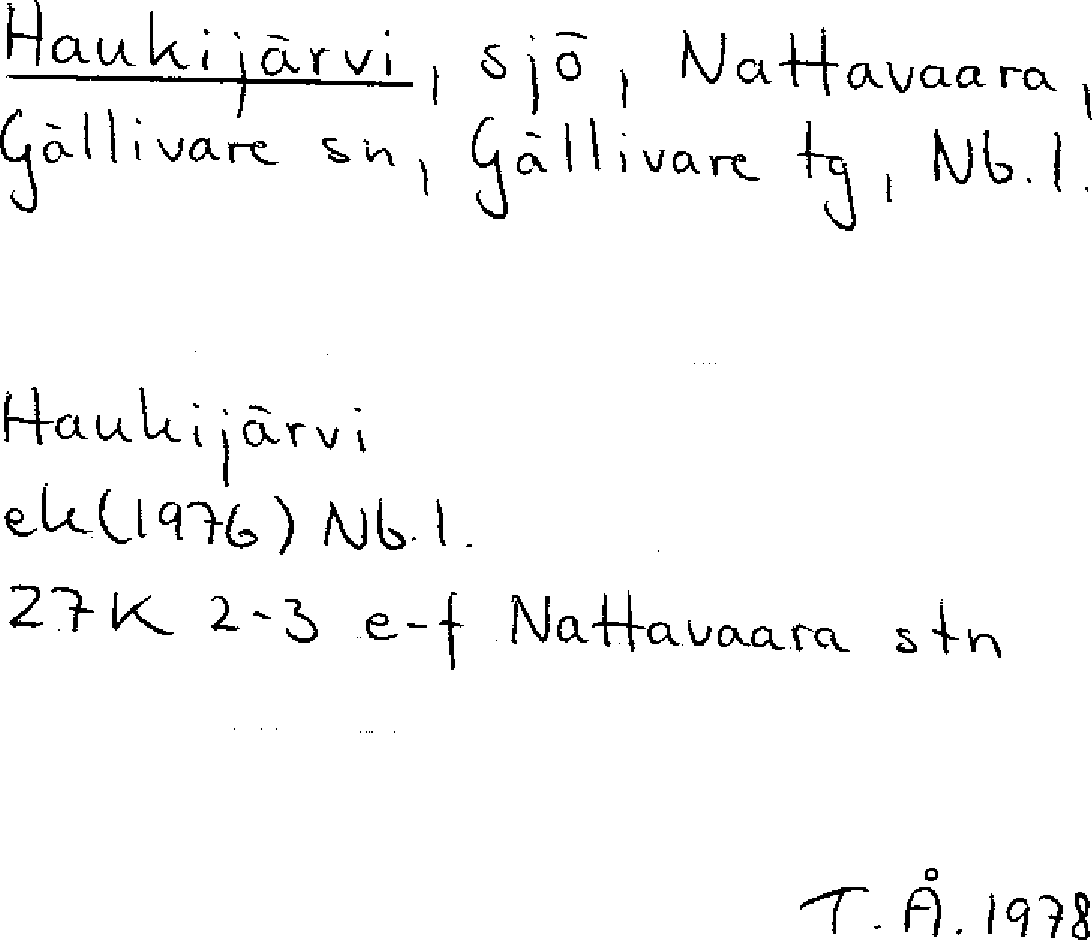 Haukijärvi, sjö, Nattavaara,
Gällivare sn, Gällivare tg, Nb.l.
Haukijärvi
ek(1976) Nb.l.
27K 2-3 e-f Nattavaara stn
T.Å. 1978